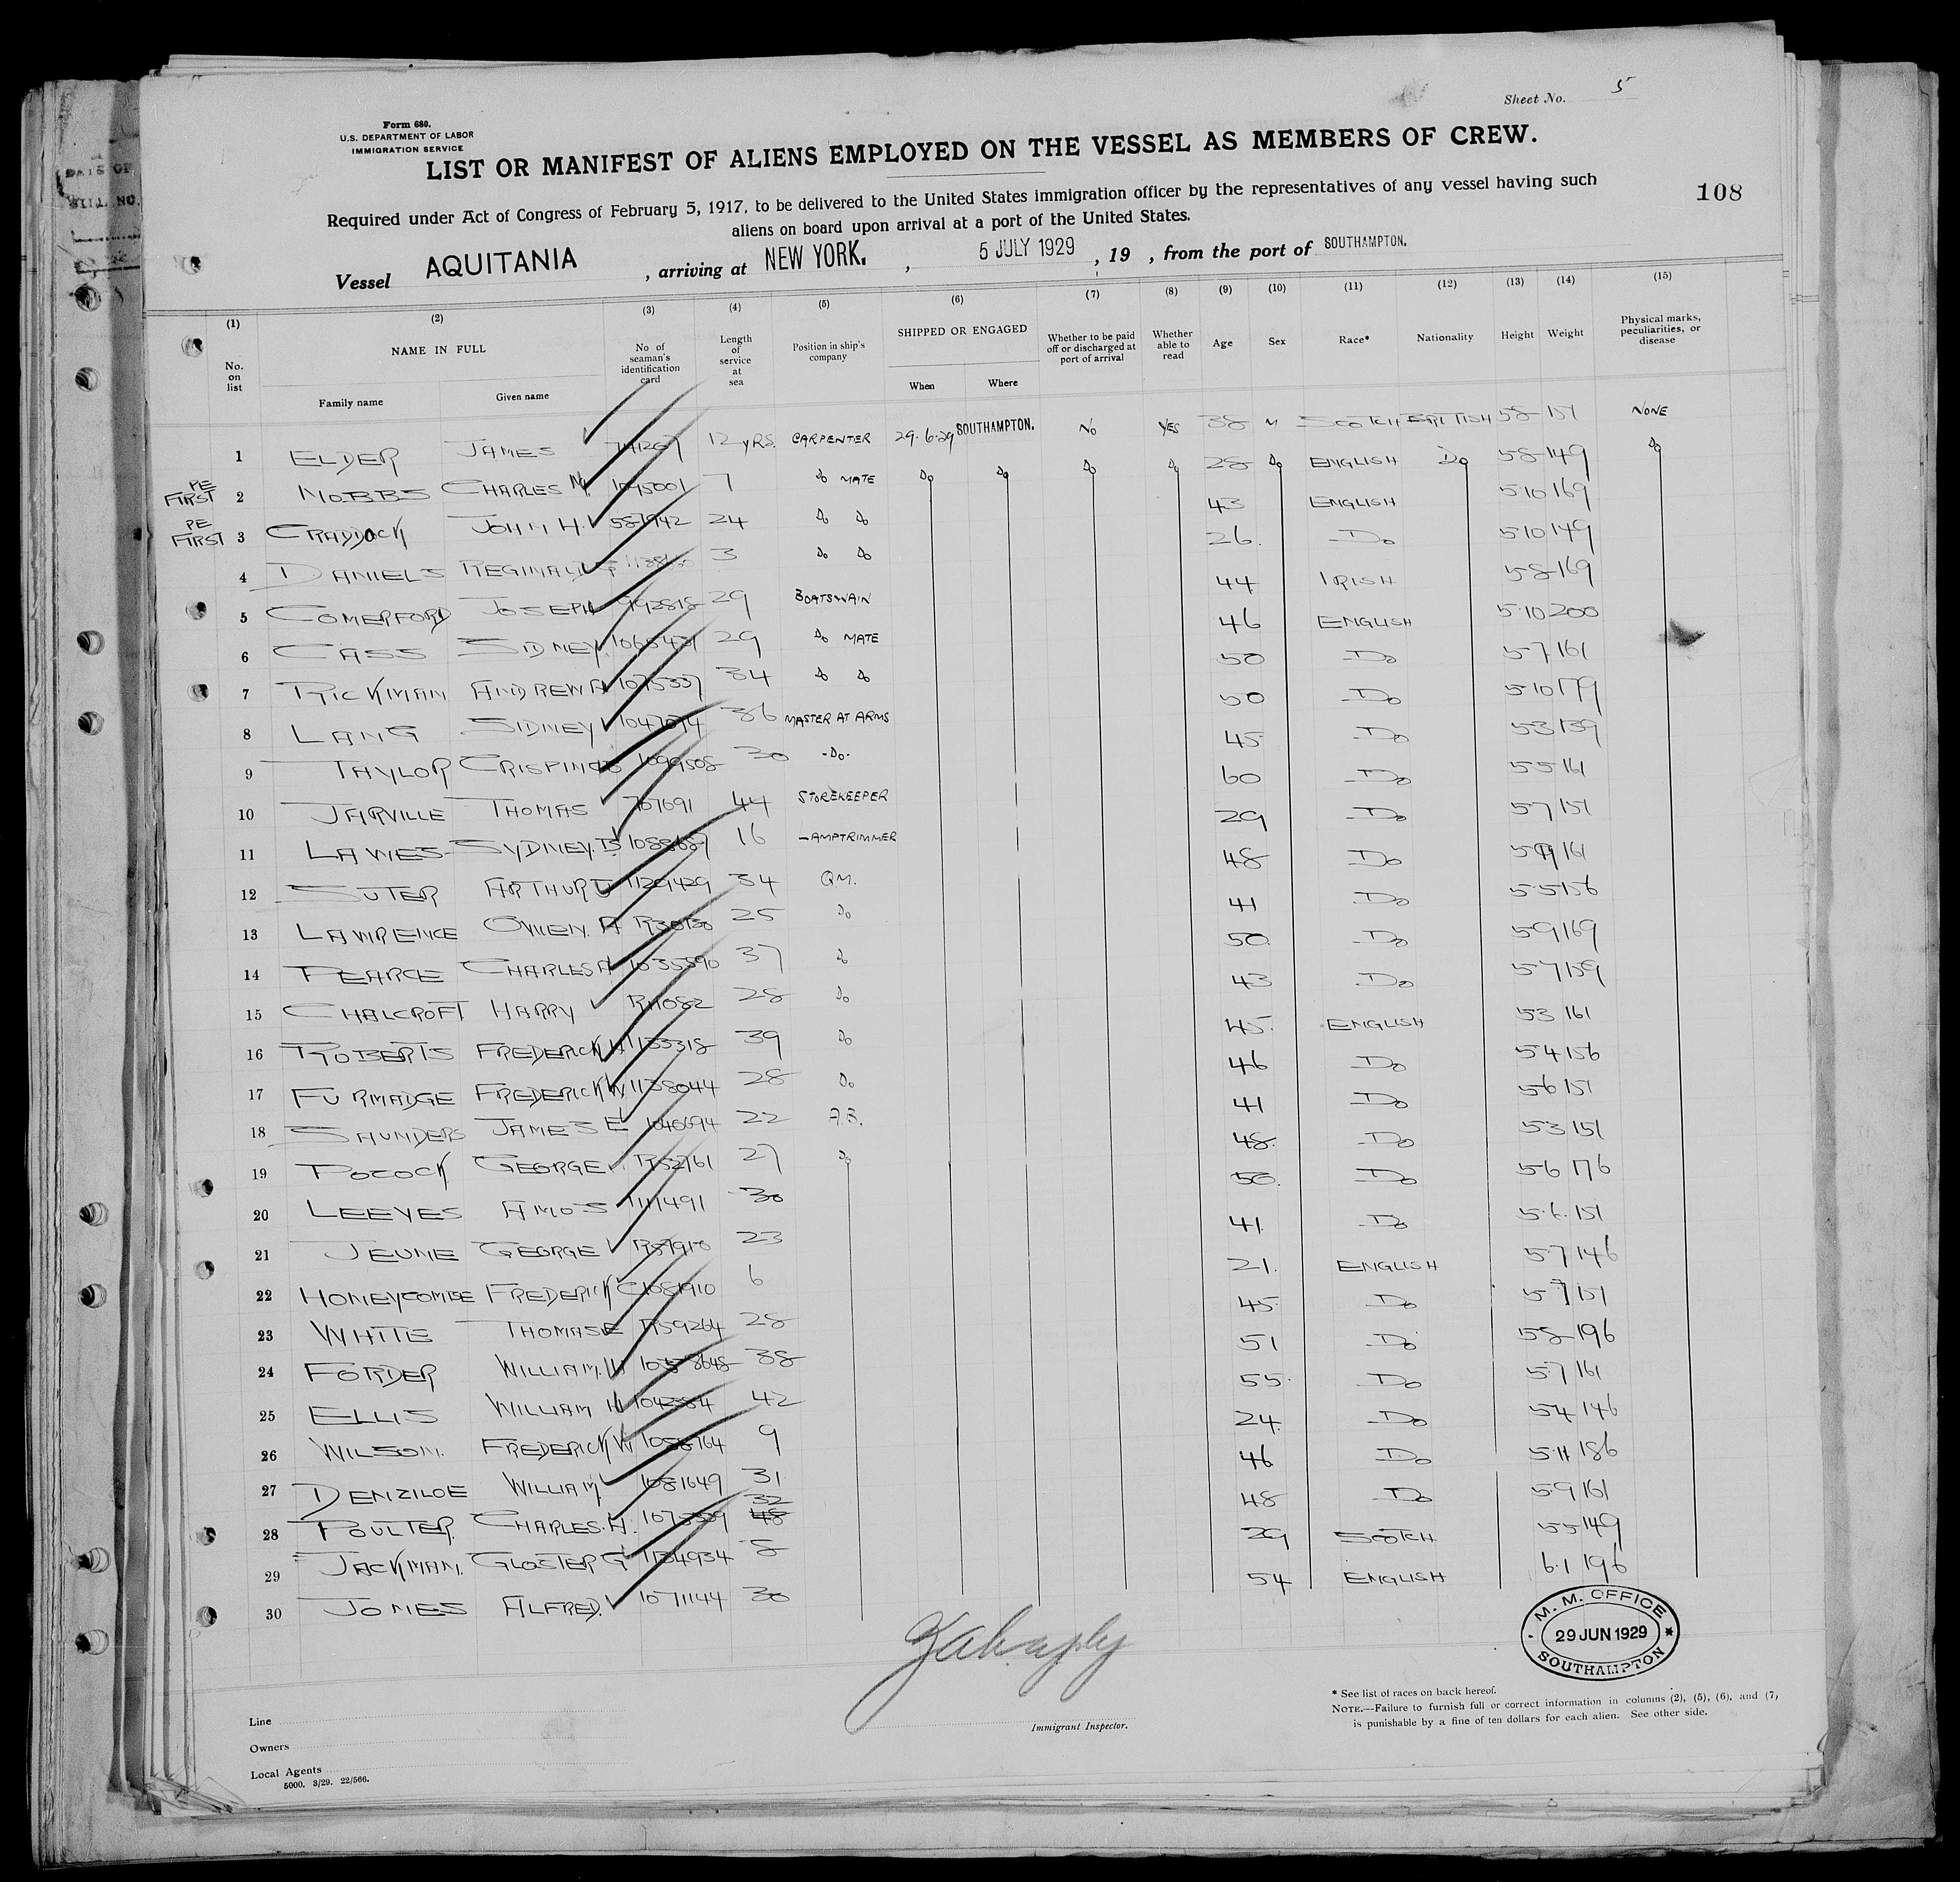 Sheet No. 5
Form 680.
U.S. DEPARTMENT OF LABOR
IMMIGRATION SERVICE
LIST OR MANIFEST OF ALIENS EMPLOYED ON THE VESSEL AS MEMBERS OF CREW.
108
Required under Act of Congress of February 5, 1917, to be delivered to the United States immigration officer by the representatives of any vessel having such
aliens on board upon arrival at a port of the United States.
Vessel AQUITANIA , arriving at NEW YORK. , 5 JULY 1929 , 19 , from the port of SOUTHAMPTON.
(1) (2) (3) (4) (5) (6) (7) (8) (9) (10) (11) (12) (13) (14) (15)
No. on list NAME IN FULL No of seaman's identification card Length of service at sea Position in ship's company SHIPPED OR ENGAGED Whether to be paid off or discharged at port of arrival Whether able to read Age Sex Race* Nationality Height Weight Physical marks, peculiarities, or disease
Family name Given name When Where
1 ELDER JAMES 12 YRS. CARPENTER 29.6.29 SOUTHAMPTON. NO YES 38 M SCOTCH BRITISH 58 151 NONE
PE FIRST 2 MOBBS CHARLES 1095001 7 Do MATE Do Do Do Do 28 Do ENGLISH Do 58 149 Do
PE FIRST 3 CRADDOCK JOHN H. 581942 24 Do Do 43 ENGLISH 5 10 169
4 DANIELS REGINALD 3 Do Do 26. Do 5 10 149
5 COMERFORD JOSEPH 992818 29 BOATSWAIN 44 IRISH 58 169
6 CASS SIDNEY. 1065431 29 Do MATE 46 ENGLISH 5.10 200
7 RICKMAN ANDREW A 1075337 34 Do Do 50 Do 57 161
8 LANG SIDNEY 36 MASTER AT ARMS 50 Do 510 179
9 TAYLOR CRISPIN 1099508 30 -Do- 45 Do 53 139
10 JARVILLE THOMAS 767691 44 STOREKEEPER 60 Do 55 161
11 LAWES SYDNEY. 16 LAMPTRIMMER 29 Do 57 151
12 SUTER ARTHUR J 1129429 34 Q.M. 48 Do 161
13 LAWRENCE OWEN. A 25 Do 41 Do 5.5 156
14 PEARCE CHARLES 37 Do 50 Do 59 169
15 CHALCROFT HARRY R11082 28 Do 43 Do 57 159
16 ROBERTS FREDERICK 39 Do 45. ENGLISH 53 161
17 FURMADGE FREDERICK W 1138044 28 Do 46 Do 54 156
18 SAUNDERS JAMES E 1046694 22 A.B. 41 Do 56 151
19 POCOCK GEORGE R52761 27 Do 48. Do 53 151
20 LEEYES AMOS 1111491 30 50. Do 56 176
21 JEUNE GEORGE 23 41 Do 5.6. 151
22 HONEYCOMBE FREDERICK C 1081910 6 21. ENGLISH 57 146
23 WHITE THOMAS E R59264 28 45 Do 57 151
24 FORDER WILLIAM. 38 51 Do 58 196
25 ELLIS WILLIAM H 42 55 Do 57 161
26 WILSON. FREDERICK W 1058164 9 24. Do 54 146
27 DENZILOE WILLIAM 1081649 31 46 Do 5.11 186
28 POULTER. CHARLES. H. 32 48 48 Do 59 161
29 JACKMAN. GLOSTER G 1134934 8 29 SCOTCH 55 149
30 JONES ALFRED. 1071144 30 54 ENGLISH 6.1 196
M. M. OFFICE
29 JUN 1929
SOUTHAMPTON
Immigrant Inspector.
* See list of races on back hereof.
NOTE.—Failure to furnish full or correct information in columns (2), (5), (6), and (7)
is punishable by a fine of ten dollars for each alien. See other side.
Line
Owners
Local Agents
5000. 3/29. 22/566.